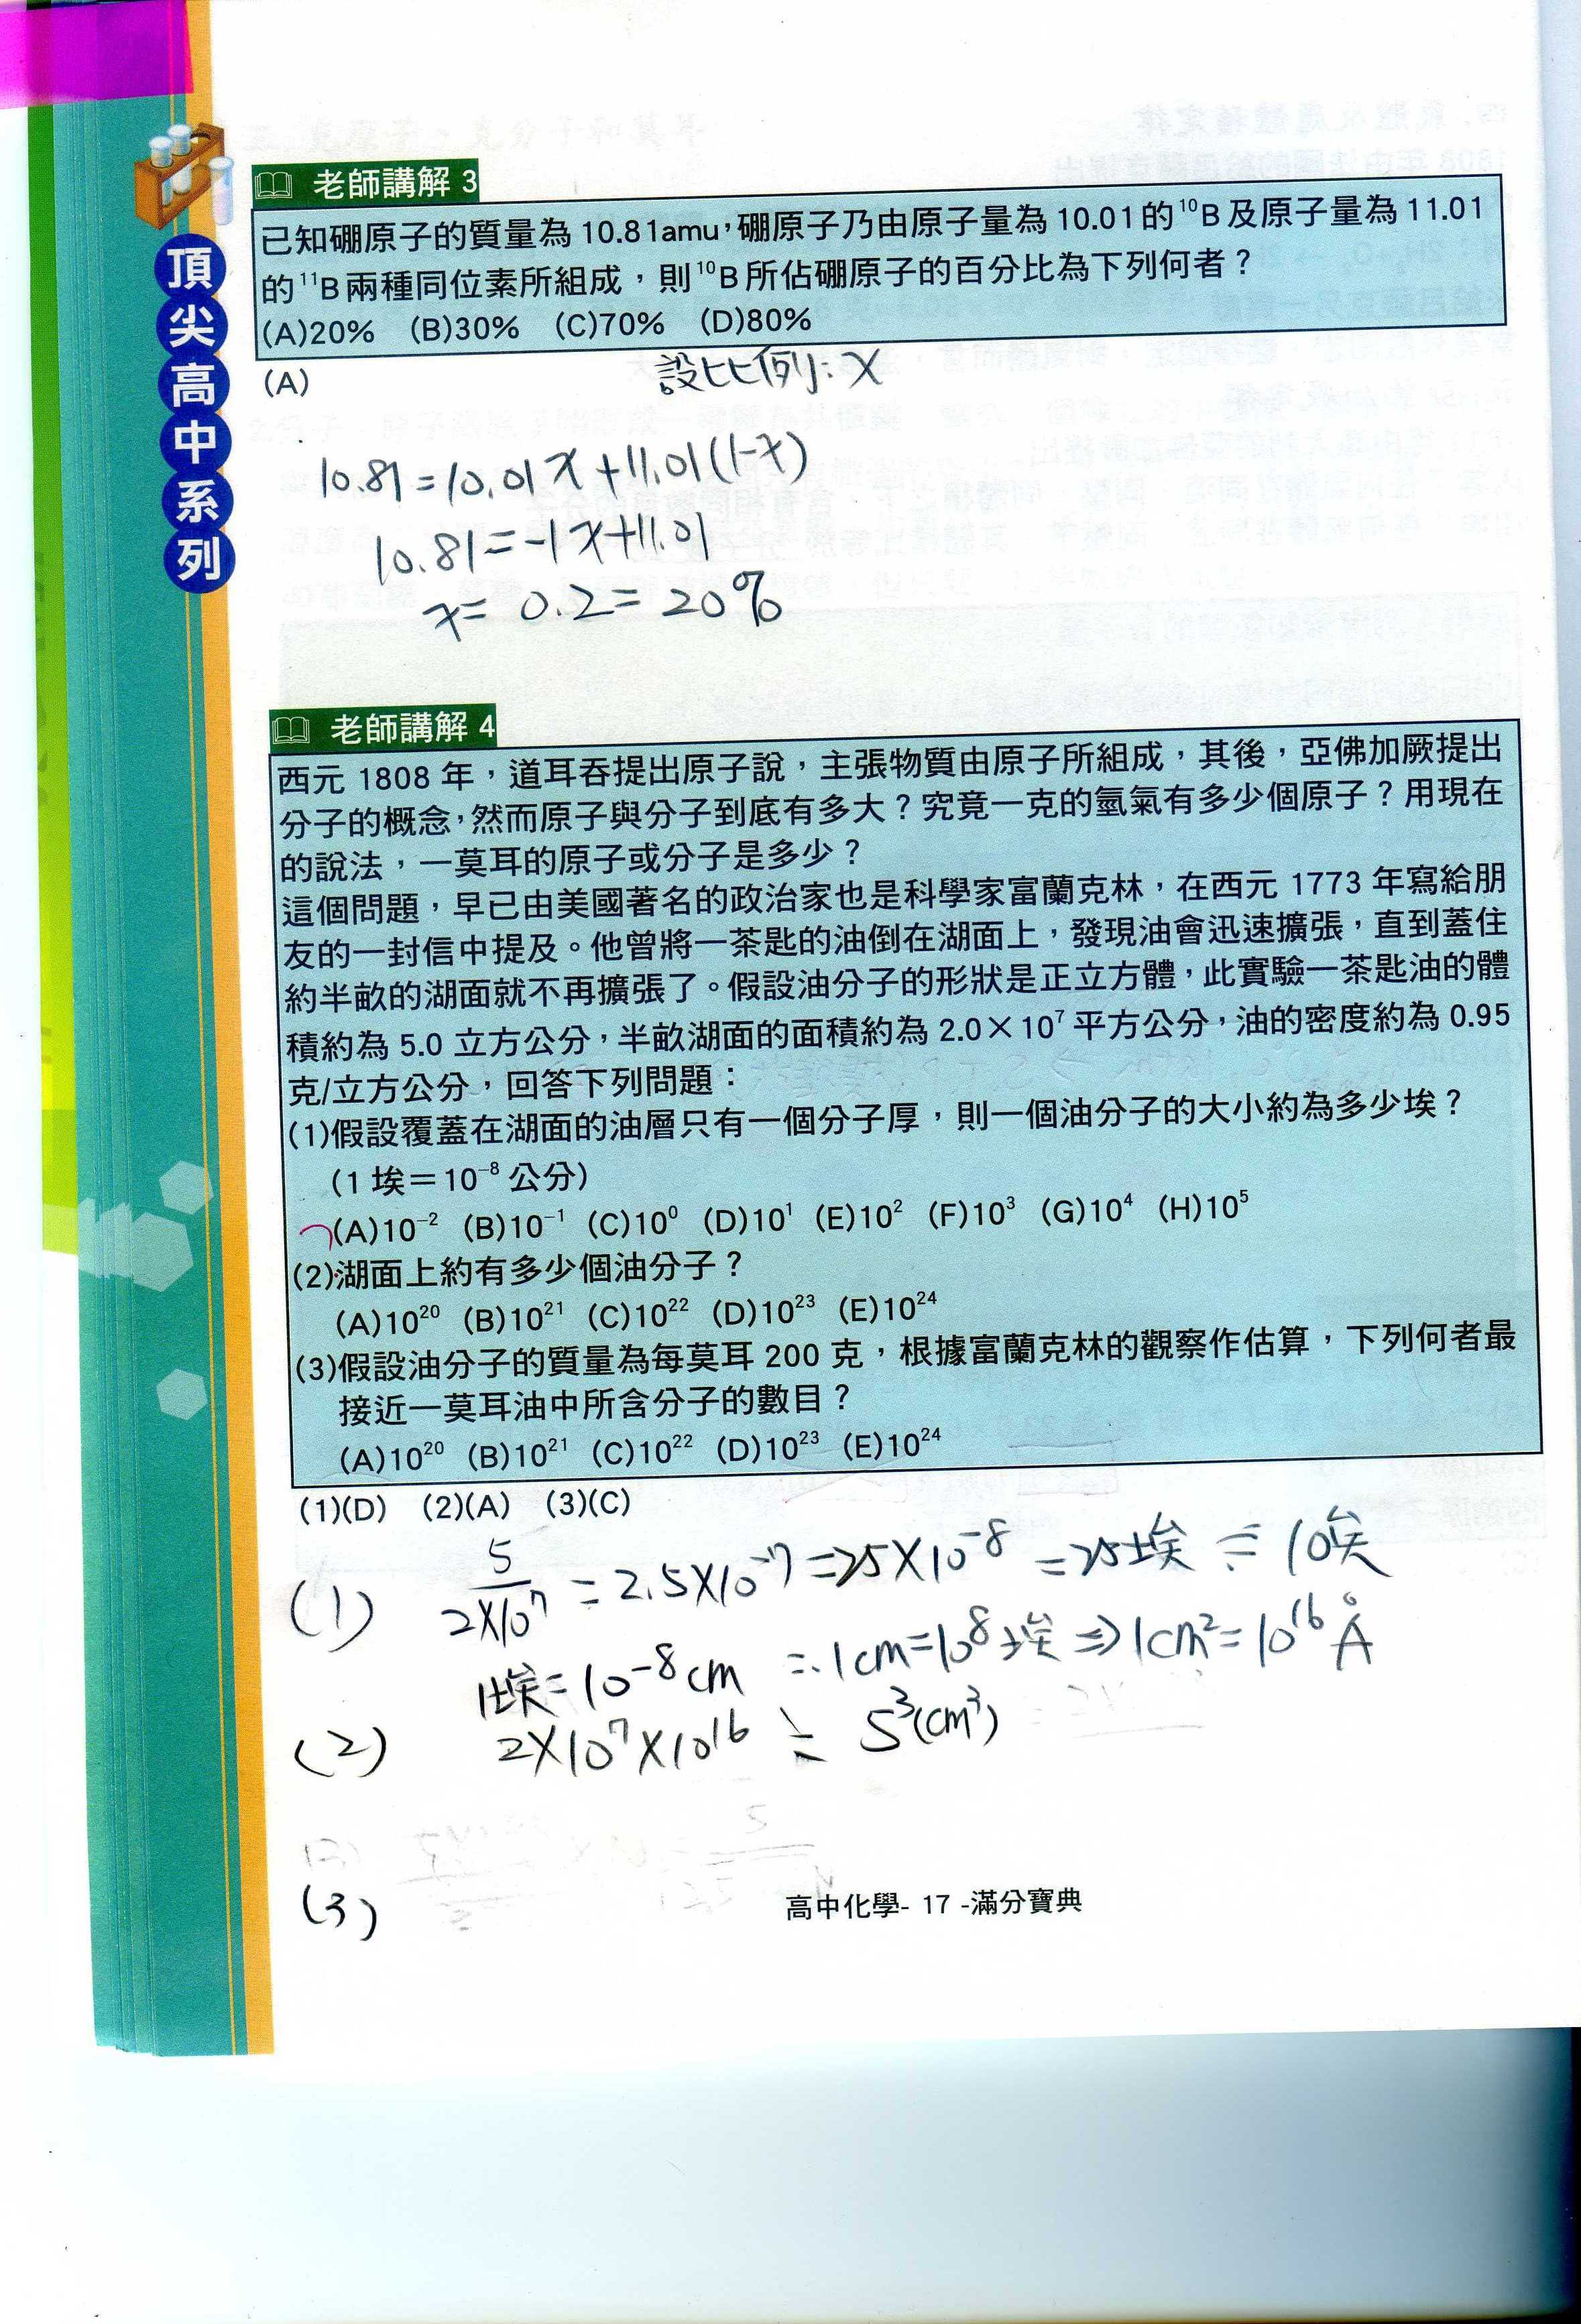 頂尖高中系列
老師講解 3
已知硼原子的質量為 10.81amu，硼原子乃由原子量為 10.01 的 ¹⁰B 及原子量為 11.01
的 ¹¹B 兩種同位素所組成，則 ¹⁰B 所佔硼原子的百分比為下列何者？
(A)20% (B)30% (C)70% (D)80%
(A)
設比例：x
10.81=10.01x+11.01(1-x)
10.81=-1x+11.01
x=0.2=20%
老師講解 4
西元 1808 年，道耳吞提出原子說，主張物質由原子所組成，其後，亞佛加厥提出
分子的概念，然而原子與分子到底有多大？究竟一克的氫氣有多少個原子？用現在
的說法，一莫耳的原子或分子是多少？
這個問題，早已由美國著名的政治家也是科學家富蘭克林，在西元 1773 年寫給朋
友的一封信中提及。他曾將一茶匙的油倒在湖面上，發現油會迅速擴張，直到蓋住
約半畝的湖面就不再擴張了。假設油分子的形狀是正立方體，此實驗一茶匙油的體
積約為 5.0 立方公分，半畝湖面的面積約為 2.0×10⁷ 平方公分，油的密度約為 0.95
克/立方公分，回答下列問題：
(1)假設覆蓋在湖面的油層只有一個分子厚，則一個油分子的大小約為多少埃？
(1 埃＝10⁻⁸ 公分)
(A)10⁻² (B)10⁻¹ (C)10⁰ (D)10¹ (E)10² (F)10³ (G)10⁴ (H)10⁵
(2)湖面上約有多少個油分子？
(A)10²⁰ (B)10²¹ (C)10²² (D)10²³ (E)10²⁴
(3)假設油分子的質量為每莫耳 200 克，根據富蘭克林的觀察作估算，下列何者最
接近一莫耳油中所含分子的數目？
(A)10²⁰ (B)10²¹ (C)10²² (D)10²³ (E)10²⁴
(1)(D) (2)(A) (3)(C)
(1) 5/2×10⁷ = 2.5×10⁻⁷=25×10⁻⁸=25埃≒10埃
1埃=10⁻⁸cm ∴1cm=10⁸埃⇒1cm²=10¹⁶Å
(2) 2×10⁷×10¹⁶ ≒ 5³(cm³)
(3)
高中化學- 17 -滿分寶典